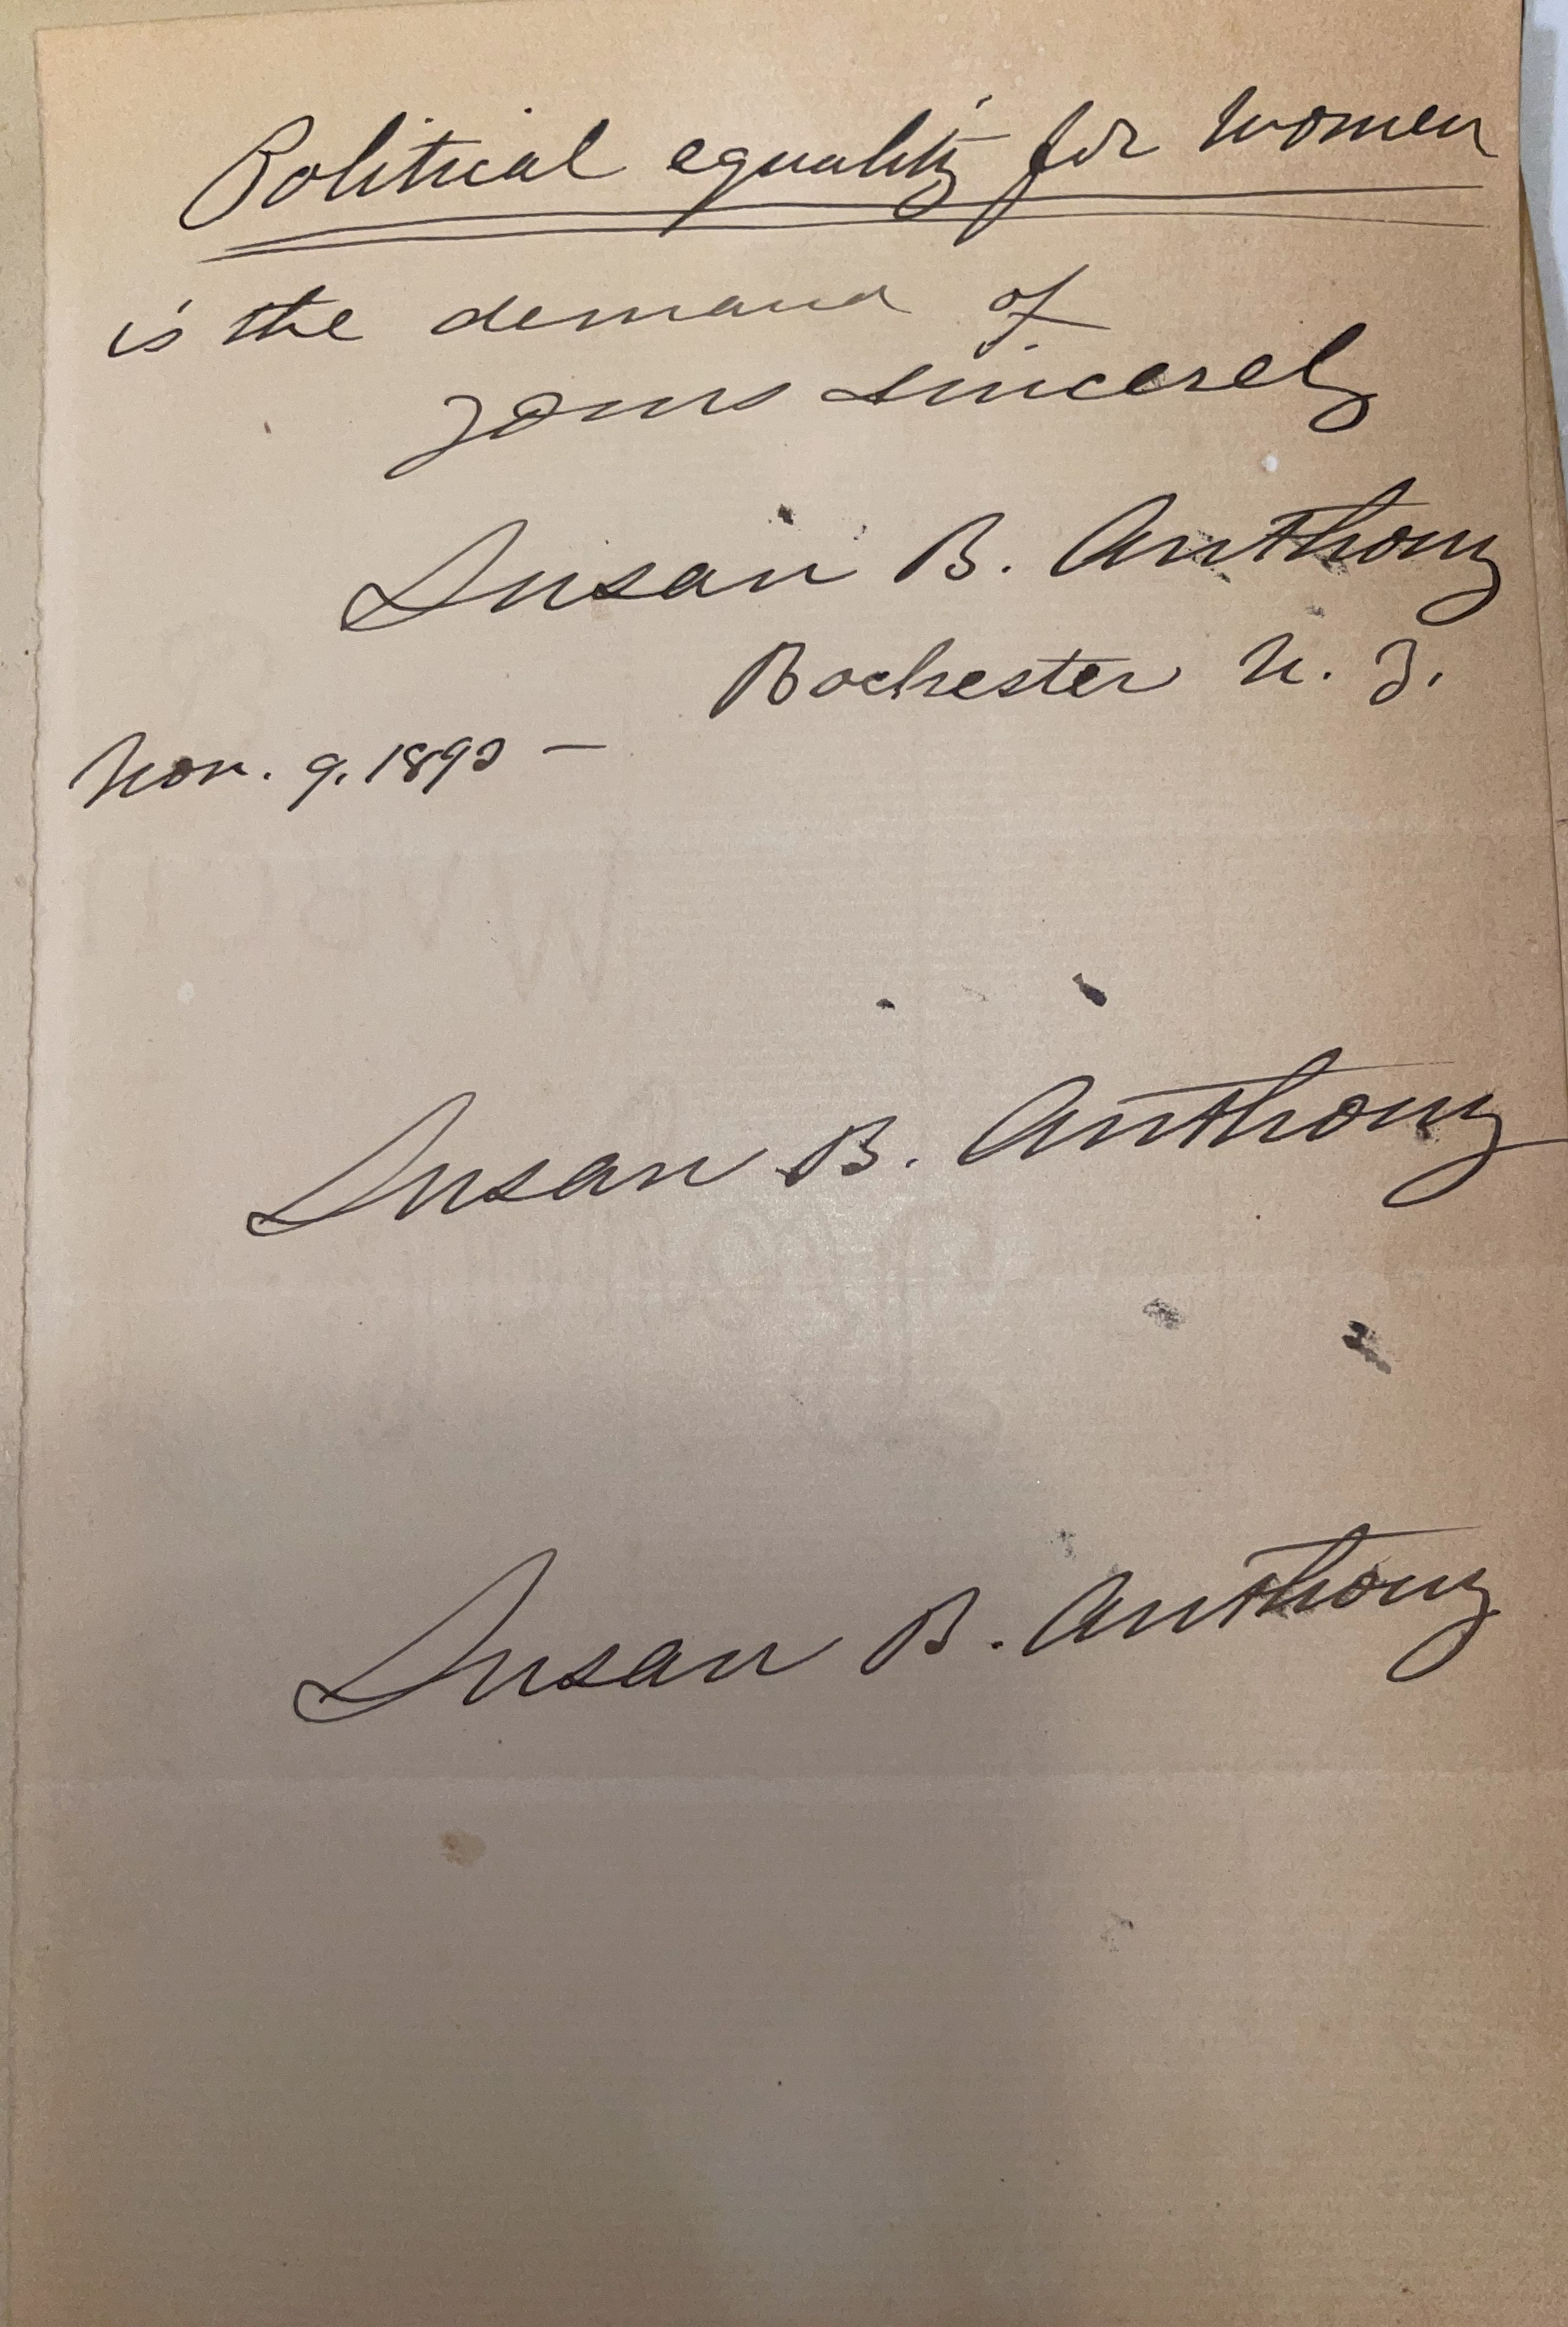 Political equality for women
is the demand of
yours sincerely
Susan B. Anthony
Rochester N. Y.
Nov. 9.
Susan B. Anthony
Susan B. Anthony